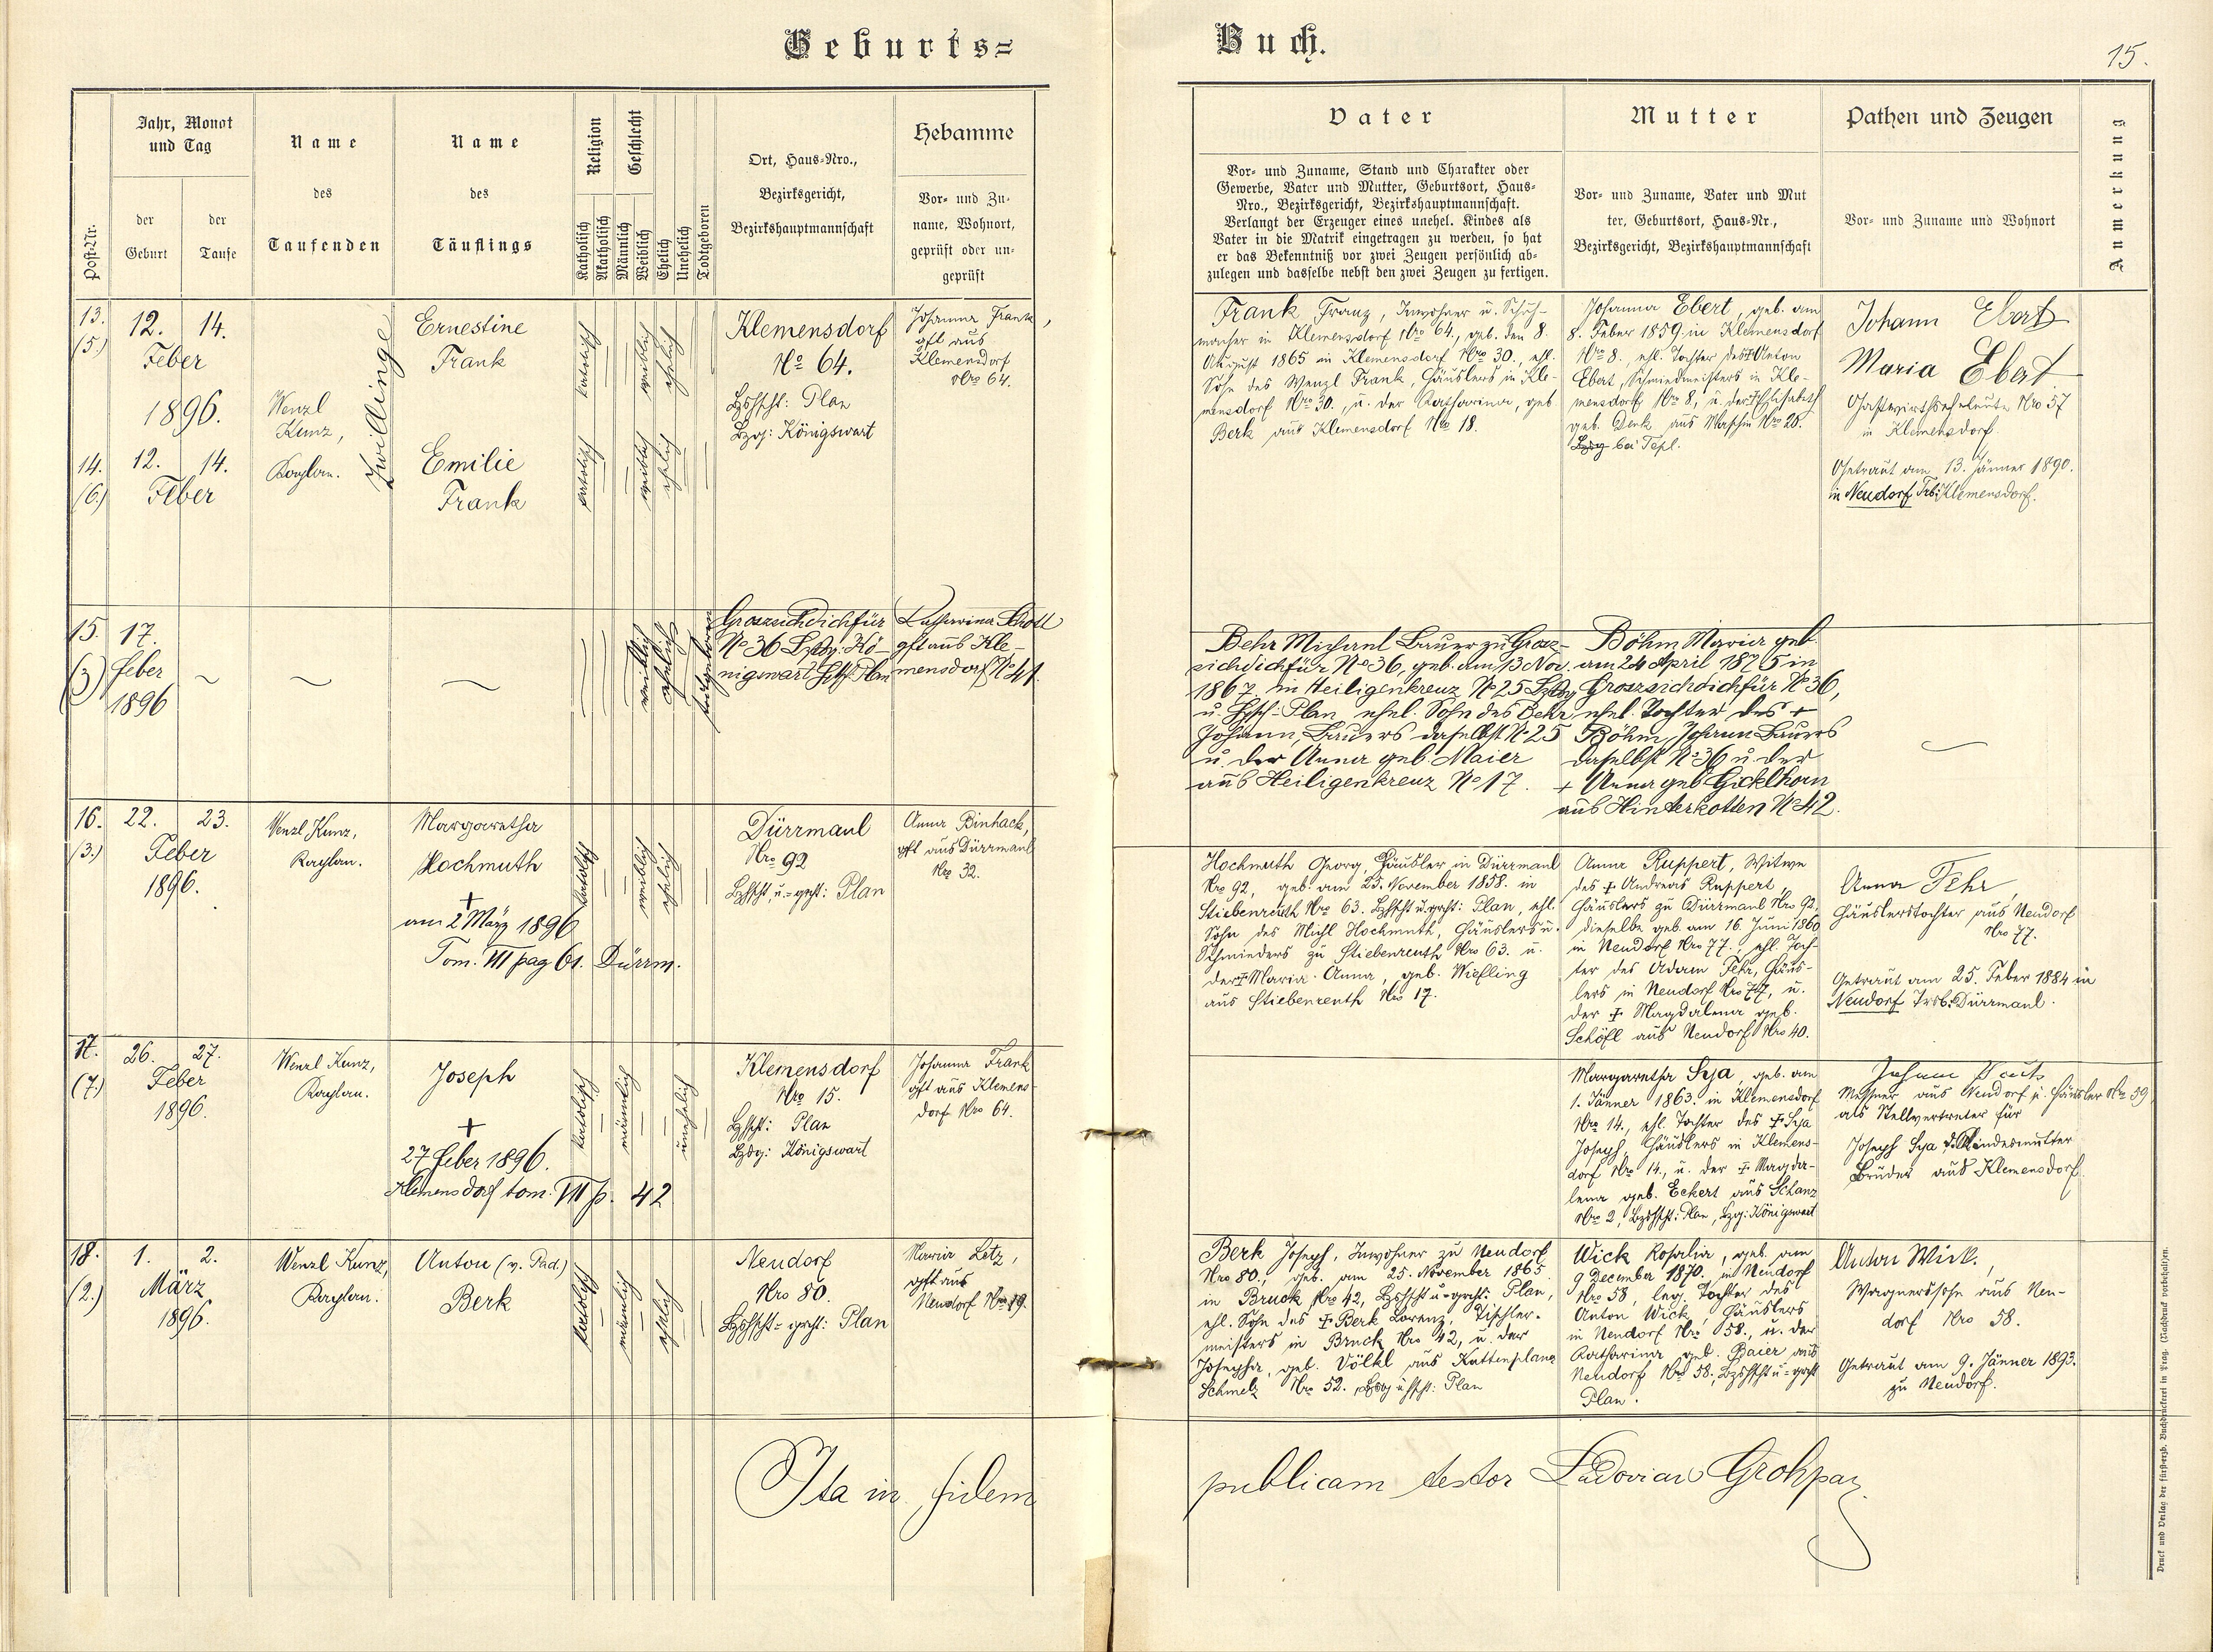 Geburts=
Buch.
15.
Post-Nr.
Jahr, Monat
und Tag
der
Geburt
der
Taufe
Name
des
Taufenden
Name
des
Täuflings
Religion
Katholisch
Akatholisch
Geschlecht
Männlich
Weiblich
Ehelich
Unehelich
Todtgeboren
Ort, Haus-Nro.,
Bezirksgericht,
Bezirkshauptmannschaft
Hebamme
Vor- und Zu-
name, Wohnort,
geprüft oder un-
geprüft
Vater
Vor- und Zuname, Stand und Charakter oder
Gewerbe, Vater und Mutter, Geburtsort, Haus-
Nro., Bezirksgericht, Bezirkshauptmannschaft.
Verlangt der Erzeuger eines unehel. Kindes als
Vater in die Matrik eingetragen zu werden, so hat
er das Bekenntniß vor zwei Zeugen persönlich ab-
zulegen und dasselbe nebst den zwei Zeugen zu fertigen.
Mutter
Vor- und Zuname, Vater und Mut
ter, Geburtsort, Haus-Nr.,
Bezirksgericht, Bezirkshauptmannschaft
Pathen und Zeugen
Vor- und Zuname und Wohnort
Anmerkung
13.
(5.)
12. 14.
Feber
1896.
Wenzl
Kunz,
Kaplan.
Zwillinge
Ernestine
Frank
katholisch
weiblich
ehelich
Klemensdorf
No 64.
Bzhschft: Plan
Bzg: Königswart
Johanna Frank,
gft aus
Klemensdorf
Nro 64.
14.
(6.)
12. 14.
Feber
Emilie
Frank
katholisch
weiblich
ehelich
Frank Franz, Inwohner u. Schuh-
macher in Klemensdorf Nro 64., geb. den 8
August 1865 in Klemensdorf Nro 30., ehl.
Sohn des Wenzl Frank, Häuslers in Kle-
mensdorf Nro 30., u. der Katharina, geb
Berk aus Klemensdorf Nro 18.
Johanna Ebert, geb. am
8. Feber 1859 in Klemensdorf
Nro 8., ehl. Tochter des † Anton
Ebert, Schmiedmeisters in Kle-
mensdorf Nro 8, u. der † Elisabeth
geb. Denk aus Maschin Nro 20.
bei Tepl.
Johann Ebert
Maria Ebert
Gastwirthseheleute Nro 57
in Klemensdorf.
Getraut am 13. Jänner 1890.
in Neudorf Trb: Klemensdorf.
15.
(3)
17.
Feber
1896
weiblich
ehelich
todtgeboren
Groszsichdichfür
No 36 Bzg: Kö-
nigswart Plan
Katharina Schott
gft aus Kle-
mensdorf No 41.
Behr Michael Bauer zu Grosz-
sichdichfür No 36, geb. am 13 Nov.
1867 in Heiligenkreuz No 25
u. Bhsch-Plan, ehel. Sohn des Behr
Johann, Bauers daselbst No 25
u. der Anna geb. Maier
aus Heiligenkreuz No 17.
Böhm Maria geb.
am 24 April 1875 in
Groszsichdichfür No 36,
ehel. Tochter des +
Böhm Johann Bauers
daselbst No 36 u. der
+ Anna geb. Gicklhorn
aus Hinterkotten No 42.
16.
(3.)
22. 23.
Feber
1896.
Wenzl Kunz,
Kaplan.
Margaretha
Hochmuth
+
am 2 März 1896
Tom. VII pag 61. Dürrm.
katholisch
weiblich
ehelich
Dürrmaul
Nro 92
Bzhschft u.=gcht: Plan
Anna Binhack,
gft aus Dürrmaul
Nro 32.
Hochmuth Georg, Häusler in Dürrmaul
Nro 92, geb. am 25. November 1858. in
Stiebenreuth Nro 63. Bzhschft u.gcht: Plan, ehl.
Sohn des Michl Hochmuth, Häuslers u.
Schneiders zu Stiebenreuth Nro 63. u.
der † Maria Anna, geb. Wiefling
aus Stiebenreuth Nro 17.
Anna Ruppert, Witwe
des † Andreas Ruppert,
Häuslers zu Dürrmaul Nro 92,
dieselbe geb. am 16. Juni 1860
in Neudorf Nro 77., ehl. Toch-
ter des Adam Fehr, Häus-
lers in Neudorf Nro 77, u.
der † Magdalena geb.
Schöfl aus Neudorf Nro 40.
Anna Fehr,
Häuslerstochter aus Neudorf
Nro 77.
Getraut am 25. Feber 1884 in
Neudorf Trb: Dürrmaul.
17.
(7.)
26. 27.
Feber
1896.
Wenzl Kunz,
Kaplan.
Joseph
+
27 Feber 1896.
Klemensdorf tom. VII p. 42
katholisch
männlich
unehelich
Klemensdorf
Nro 15.
Bzhschft: Plan
Bzg: Königswart
Johanna Frank
gft aus Klemens-
dorf Nro 64.
Margaretha Sya, geb. am
1. Jänner 1863. in Klemensdorf
Nro 14., ehl. Tochter des † Sya
Joseph, Häuslers in Klemens-
dorf Nro 14, u. der † Magda-
lena geb. Eckert aus Schanz
Nro 2, Bzhschft: Plan, Bzg: Königswart
Johann
Messner aus Neudorf u. Häusler Nro 59
als Stellvertreter für
Joseph Sya d. Kindesmutter
Bruder aus Klemensdorf.
18.
(2.)
1. 2.
März
1896.
Wenzl Kunz,
Kaplan.
Anton (v. Pad.)
Berk
katholisch
männlich
ehelich
Neudorf
Nro 80.
Bzhschft=gcht: Plan
Maria Letz,
gft aus
Neudorf Nro 19.
Berk Joseph, Inwohner zu Neudorf
Nro 80., geb. am 25. November 1865
in Bruck Nro 42, Bzhschft u=gcht: Plan,
ehl. Sohn des † Berk Lorenz, Tischler-
meisters in Bruck Nro 42, u. der
Josepha, geb. Völkl aus Kuttenplaner
Schmelz Nro 52. Bzg u hschft: Plan
Wick Rosalia, geb. am
9 December 1870. in Neudorf
Nro 58, leg. Tochter des
Anton Wick, Häuslers
in Neudorf Nro 58., u. der
Katharina geb. Baier aus
Neudorf Nro 58., Bzhschft u=gcht
Plan.
Anton Wick.,
Wagnerssohn aus Neu-
dorf Nro 58.
Getraut am 9. Jänner 1893.
zu Neudorf.
Ita in fidem
publicam testor Ludovicus Groh par.
Druck und Verlag der fürsterzb. Buchdruckerei in Prag. (Nachdruck vorbehalten.